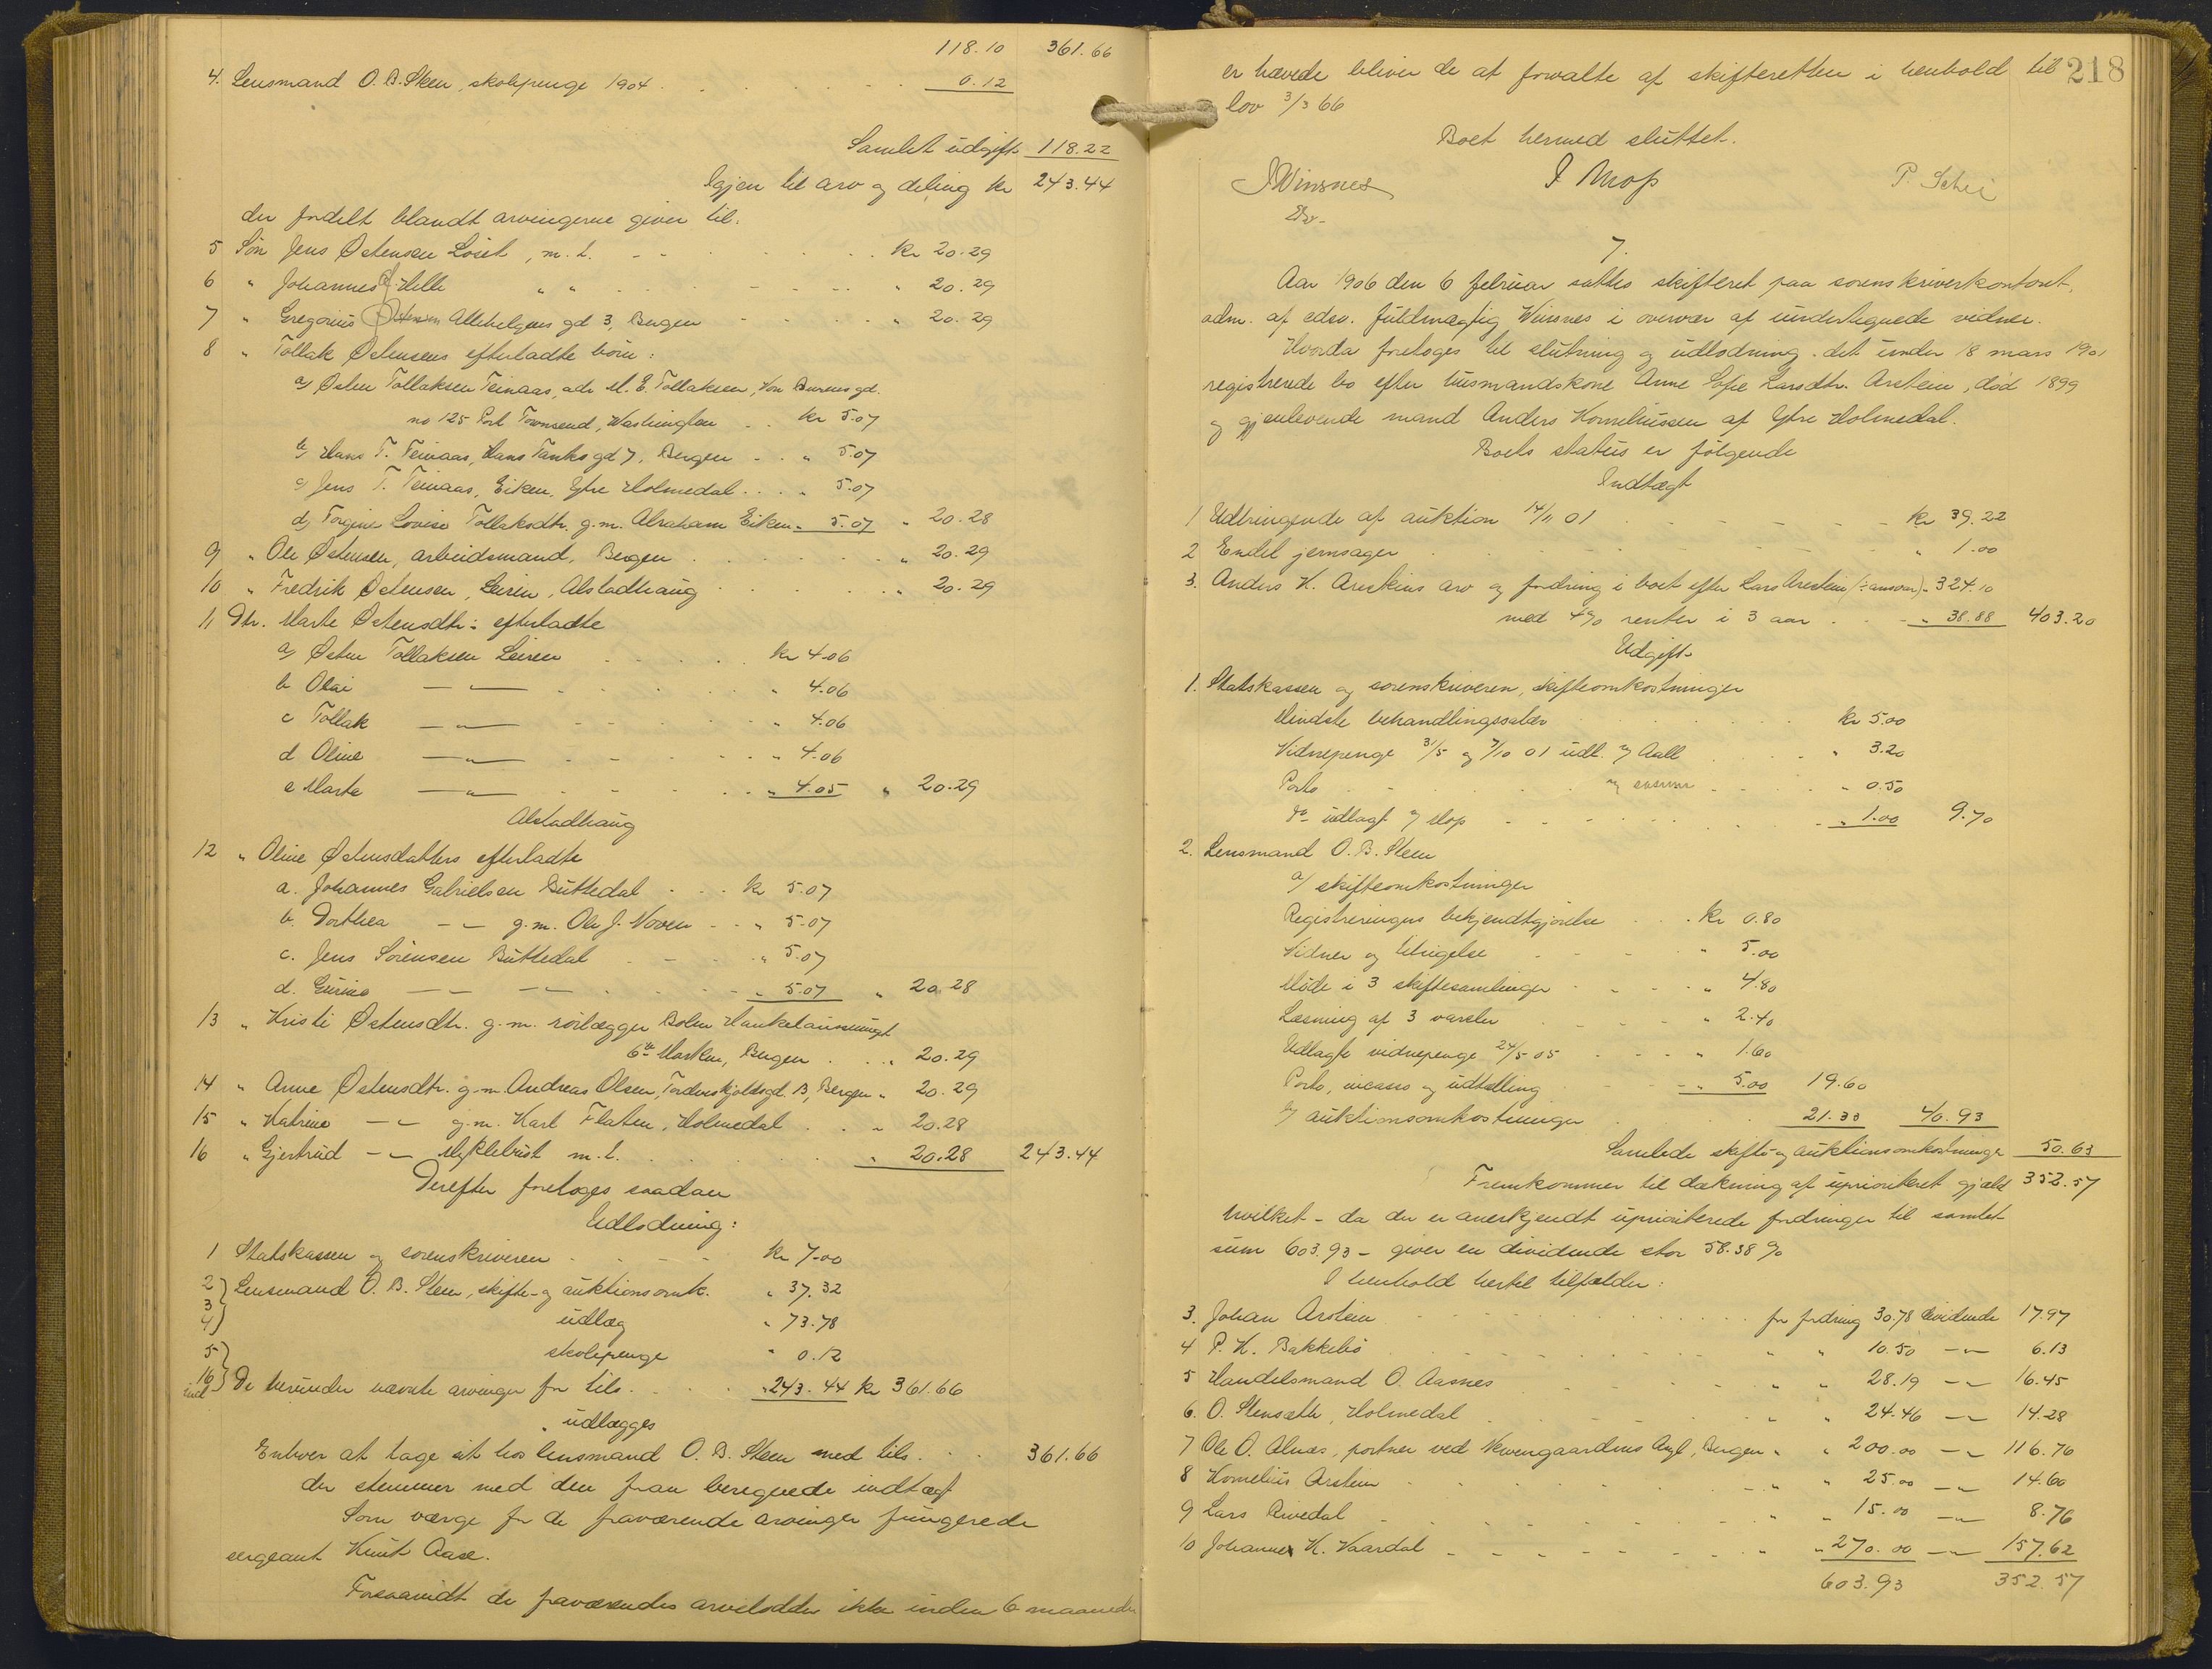 118.10 361.66
4. Lensmand O. B. Steen, skolepenge 1904 0.12
Samlet udgift 118.22
Igjen til arv og deling kr 243.44
der fordelt blandt arvingerne giver til.
5 Søn Jens Østensen Löset, m. l. kr 20.29
6 " Johannes Ø. Helle " " " 20.29
7 " Gregorius Østensen Allehelgens gd 3, Bergen " 20.29
8 " Tollak Østensens efterladte børn:
a) Østen Tollaksen Teinaas, adr M. E. Tollaksen, Von Burens gd.
no 125 Port Townsend, Washington kr 5.07
b) Hans T. Teinaas, Hans Tanks gd 7, Bergen " 5.07
c) Jens T. Teinaas, Eiken, Ytre Holmedal " 5.07
d) Torgine Lovise Tollaksdtr. g.m. Abraham Eiken " 5.07 " 20.28
9 " Ole Østensen, arbeidsmand, Bergen " 20.29
10 " Fredrik Østensen, Leiren, Alstadhaug " 20.29
11 Dtr. Marte Østensdtr: efterladte
a) Østen Tollaksen Leiren kr 4.06
b Olai —"— " 4.06
c Tollak —"— " 4.06
d Oline —"— " 4.06
e Marte —"— " 4.05 " 20.29
Alstadhaug
12 " Oline Østensdatters efterladte
a. Johannes Gabrielsen Büttedal kr 5.07
b. Dorthea —"— g.m. Ole J. Voven " 5.07
c. Jens Sörensen Büttedal " 5.07
d. Gurine —"— —"— " 5.07 " 20.28
13 " Kristi Østensdtr. g.m. rörlægger
6 Marken, Bergen " 20.29
14 " Anne Østensdtr. g.m. Andreas Olsen, Tordenskjoldsgd. 13, Bergen " 20.29
15 " Katrine —"— g.m. Karl Flaten, Holmedal " 20.28
16 " Gjertrud —"— Myklebust m.l. " 20.28 243.44
Derefter foretoges saadan
Udlodning:
1 Statskassen og sorenskriveren kr 7.00
2 Lensmand O. B. Steen, skifte- og auktionsomk. " 37.32
3
4 udlæg " 73.78
5 skolepenge " 0.12
16 incl De herunder nævnte arvinger for tils. " 243.44 kr 361.66
udlægges
Enhver at tage sit hos lensmand O. B. Steen med tils. 361.66
der stemmer med den foran beregnede indtægt
Som værge for de fraværende arvinger fungerede
sergeant Knut Aase.
Forsaavidt de fraværendes arvelodder ikke inden 6 maaneder
218
er hævede bliver de at forvalte af skifteretten i henhold til
lov 3/3 66
Boet hermed sluttet.
J Winsnes I Mop P. Schei
Edsv.
7.
Aar 1906 den 6 februar sattes skifteret paa sorenskriverkontoret,
adm. af edsv. fuldmægtig Winsnes i overvær af undertegnede vidner.
Hvorda foretoges til slutning og udlodning det under 18 mars 1901
registrerede bo efter husmandskone Anne Sofie Larsdtr. Arstein, död 1899
og gjenlevende mand Anders Korneliussen af Ytre Holmedal.
Boets status er følgende
Indtægt
1 Udbringende af auktion 14/11 01 kr 39.22
2 Endel jernsager " 1.00
3. Anders K. Arsteins arv og fordring i boet efter Lars Arstein (÷ ansvar) " 324.10
med 4% renter i 3 aar " 38.88 403.20
Udgift
1. Statskassen og sorenskriveren, skifteomkostninger
Mindste behandlingssalær kr 5.00
Vidnepenge 31/5 og 7/10 01 udl. af Aall " 3.20
Porto af samme " 0.50
Do udlagt af Mop " 1.00 9.70
2. Lensmand O. B. Steen
a/ skifteomkostninger
Registreringens bekjendtgjörelse kr 0.80
Vidner og tilsigelse " 5.00
Møde i 3 skiftesamlinger " 4.80
Læsning af 3 varsler " 2.40
Udlagte vidnepenge 24/5 05 " 1.60
Porto, incasso og udtælling " 5.00 19.60
b/ auktionsomkostninger 21.33 40.93
Samlede skifte og auktionsomkostninger 50.63
Fremkommer til dækning af uprioriteret gjæld 352.57
hvilket – da der er anerkjendt uprioriterede fordringer til samlet
sum 603.93 – giver en dividende stor 58.38 %
I henhold hertil tilfalder:
3. Johan Arstein for fordring 30.78 dividende 17.97
4 P. K. Bakkebö " " 10.50 —"— 6.13
5 Handelsmand O. Aasnes " " 28.19 —"— 16.45
6. O. Stensæth, Holmedal " " 24.46 —"— 14.28
7 Ole O. Alnæs, portner ved Nevengaardens Asyl, Bergen " " 200.00 —"— 116.76
8 Kornelius Arstein " " 25.00 —"— 14.60
9 Lars Rivedal " " 15.00 —"— 8.76
10 Johannes K. Vaardal " " 270.00 —"— 157.62
603.93 352.57